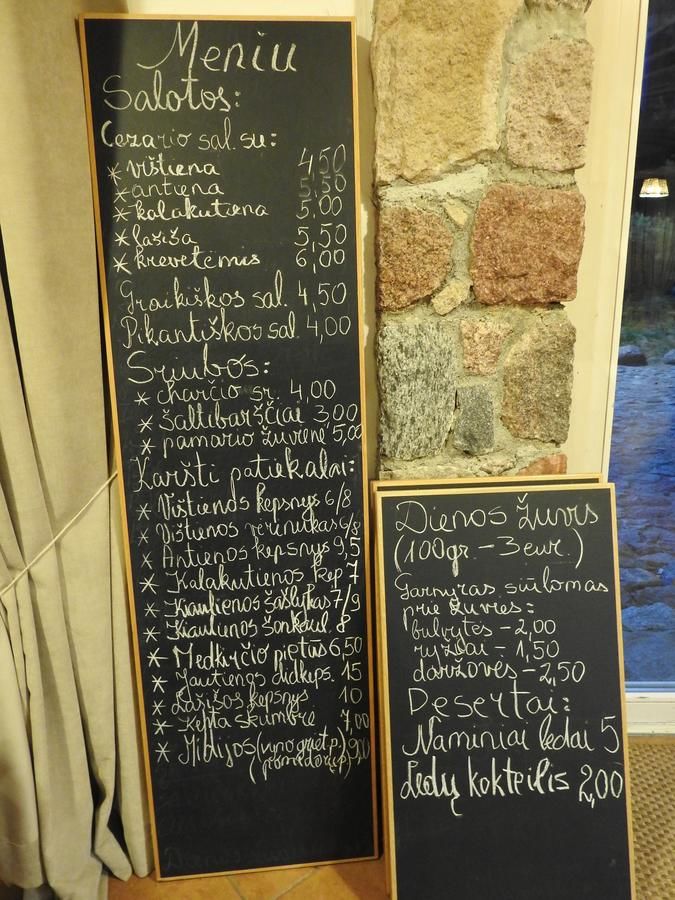 Meniu
Salotos:
Cezario sal. su:
* vištiena 4,50
* antiena 5,50
* kalakutiena 5,00
* lašiša 5,50
* krevetėmis 6,00
Graikiškos sal. 4,50
Pikantiškos sal. 4,00
Sriubos:
* charčio sr. 4,00
* Šaltibarščiai 3,00
* pamario žuvienė 5,00
Karšti patiekalai:
* Vištienos kepsnys 6/8
* Vištienos vėrinukas 6/8
* Antienos kepsnys 9,5
* Kalakutienos kep 7
* Kiaulienos šašlykas 7/9
* Kiaulienos šonkaul. 8
* Medkirčio pietūs 6,50
* Jautienos didkeps. 15
* Lašišos kepsnys 10
* Kepta skumbrė 7,00
* Midijos (vyno griet.p.)
(pomidorų p.)
Dienos žuvis
(100gr. – 3 eur.)
Garnyras siūlomas
prie žuvies:
bulvytės – 2,00
ryžiai – 1,50
daržovės – 2,50
Desertai:
Naminiai ledai 5
Ledų kokteilis 2,00